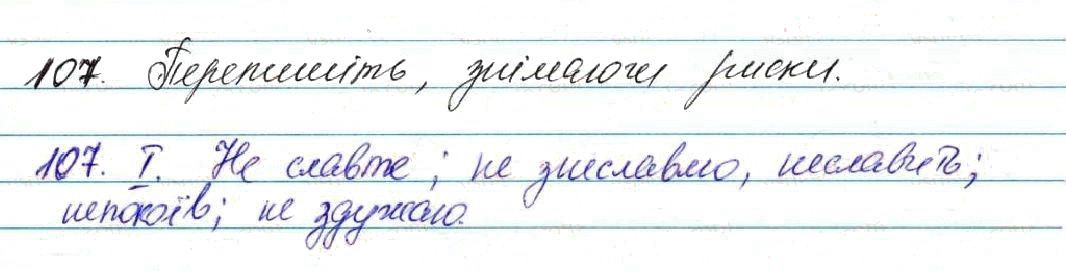 107. Перепишіть, знімаючи риски.
107. І. Не славте; не знеславмо, неславить;
непокоїв; не здужаю.